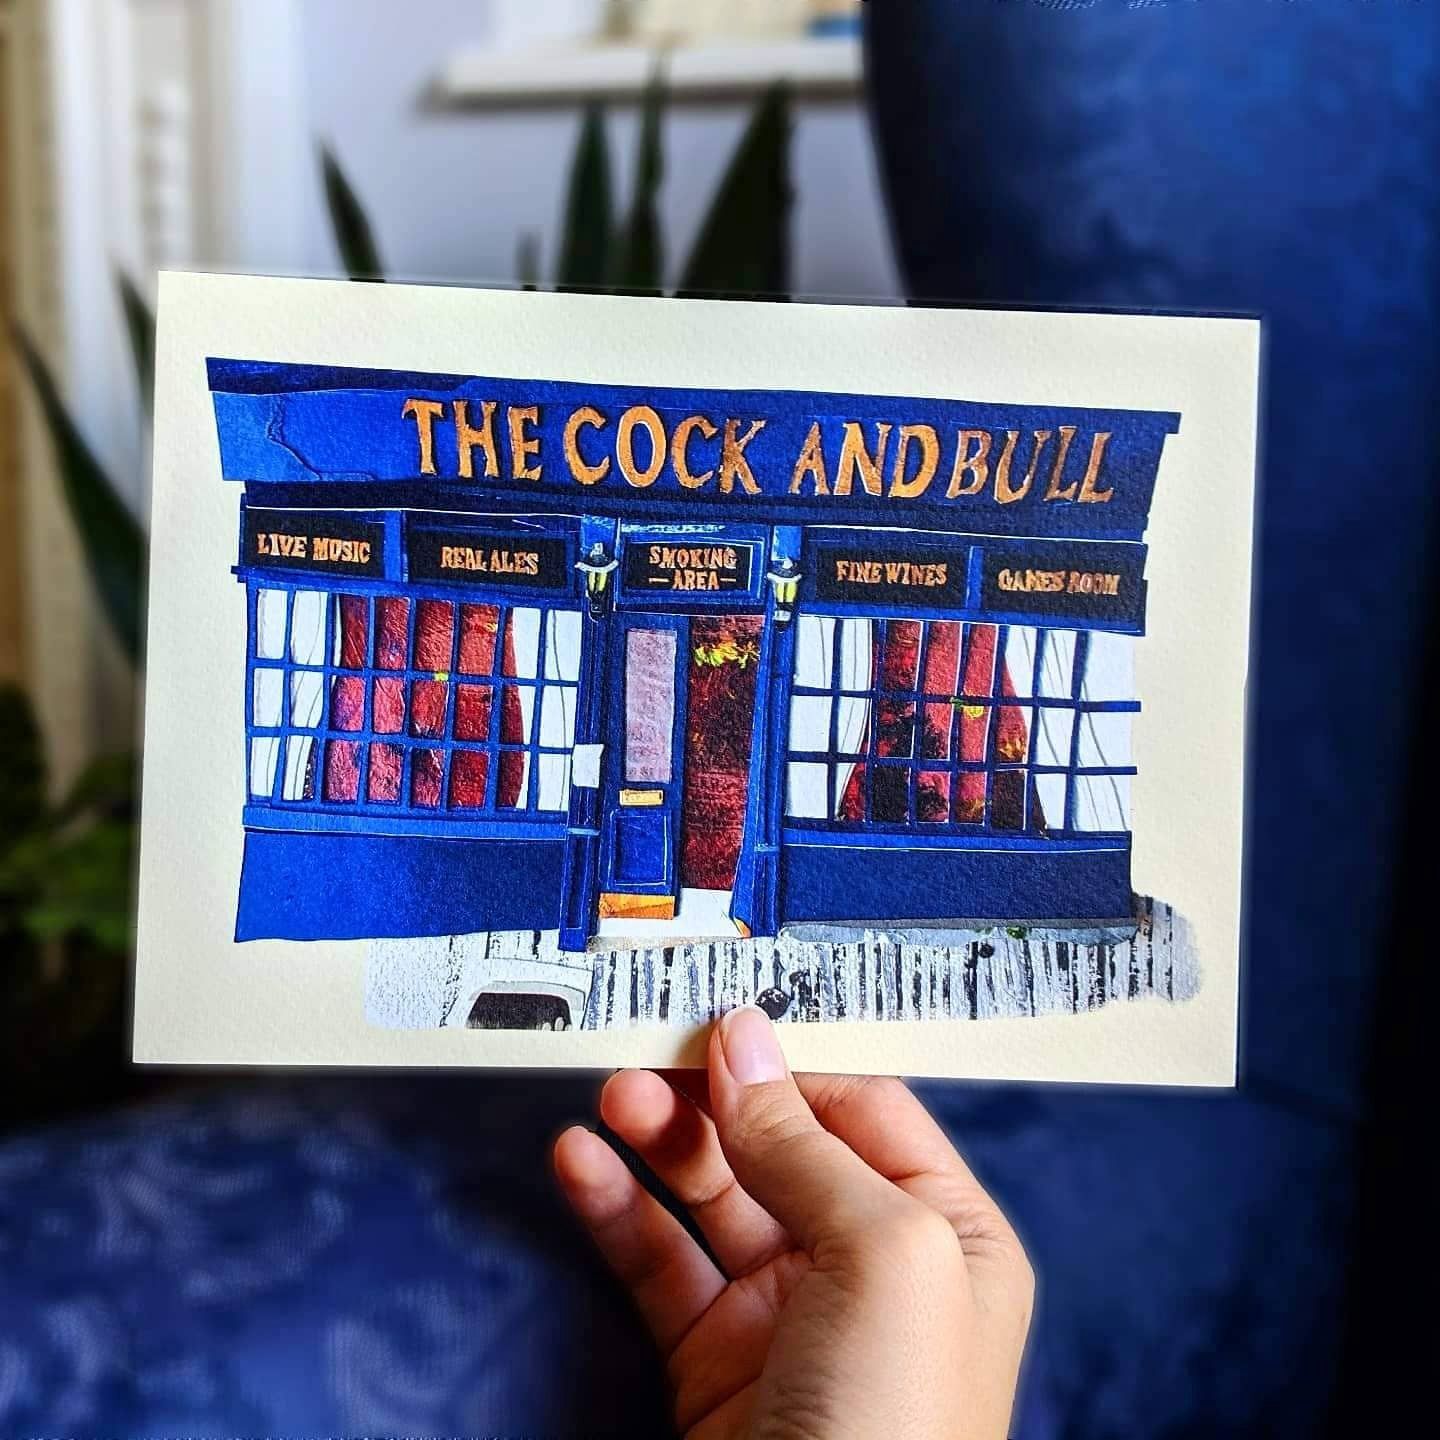 THE COCK AND BULL
LIVE MUSIC
REAL ALES
SMOKING
AREA
FINE WINES
GAMES ROOM